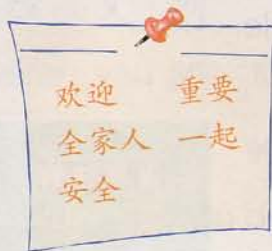 欢迎 重要
全家人 一起
安全